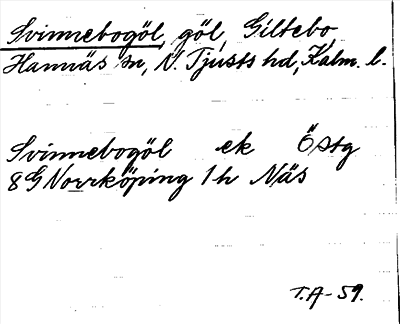 Svinnebogöl, göl, Giltebo
Hannäs sn, N. Tjusts hd, Kalm. l.
Svinnebogöl ek Östg
8G Norrköping 1h Näs
T.A-59.